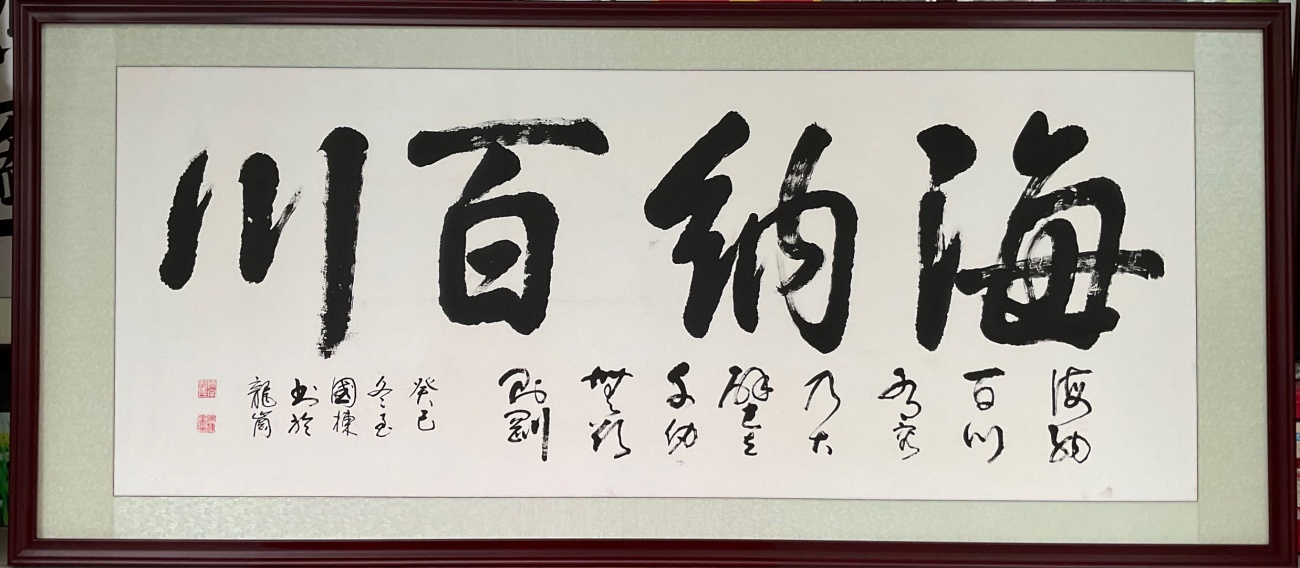 海納百川
海納
百川
有容
乃大
壁立
千仞
無欲
則剛
癸巳
冬至
國棟
书於
龍崗